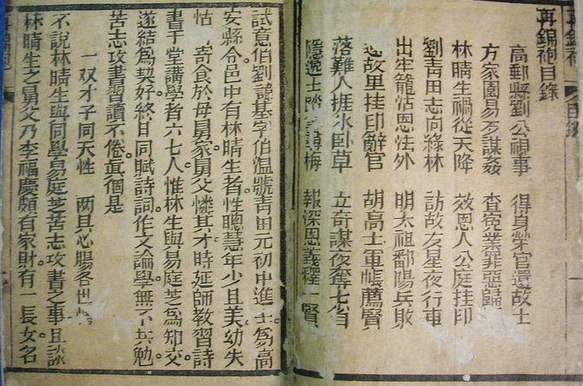 再錦袍目錄
高郵縣劉公視事 得身榮官還故士
方家園易多謀姦 查宿業罪惡歸
林晴生禍從天降 效恩人公庭挂印
劉青田志向綠林 訪故友星夜行車
出生籠沾恩性外 明太祖鄱陽兵敗
故里挂印辭官 胡高士軍帳薦賢
落難人捱氷卧草 立奇謀夜奪七省
隱逸士踏 梅 報深恩義釋二賢
試意伯劉諱基字伯溫號青田元初中進士為高
安縣令邑中有林晴生者性聰慧年少且美幼失
怙 寄食於母舅家舅父憐其才時延師教習詩
書于堂講學者六七人惟林生與易庭芝為知交
遂結為契好終日同賦詩詞作文論學無不共勉
苦志攻書習讀不倦真個是
一双才子同天性 两具心腸各世情
不說林晴生與同學易庭芝苦志攻書之事且談
林晴生之舅父乃李福慶頗有家財有一長女名